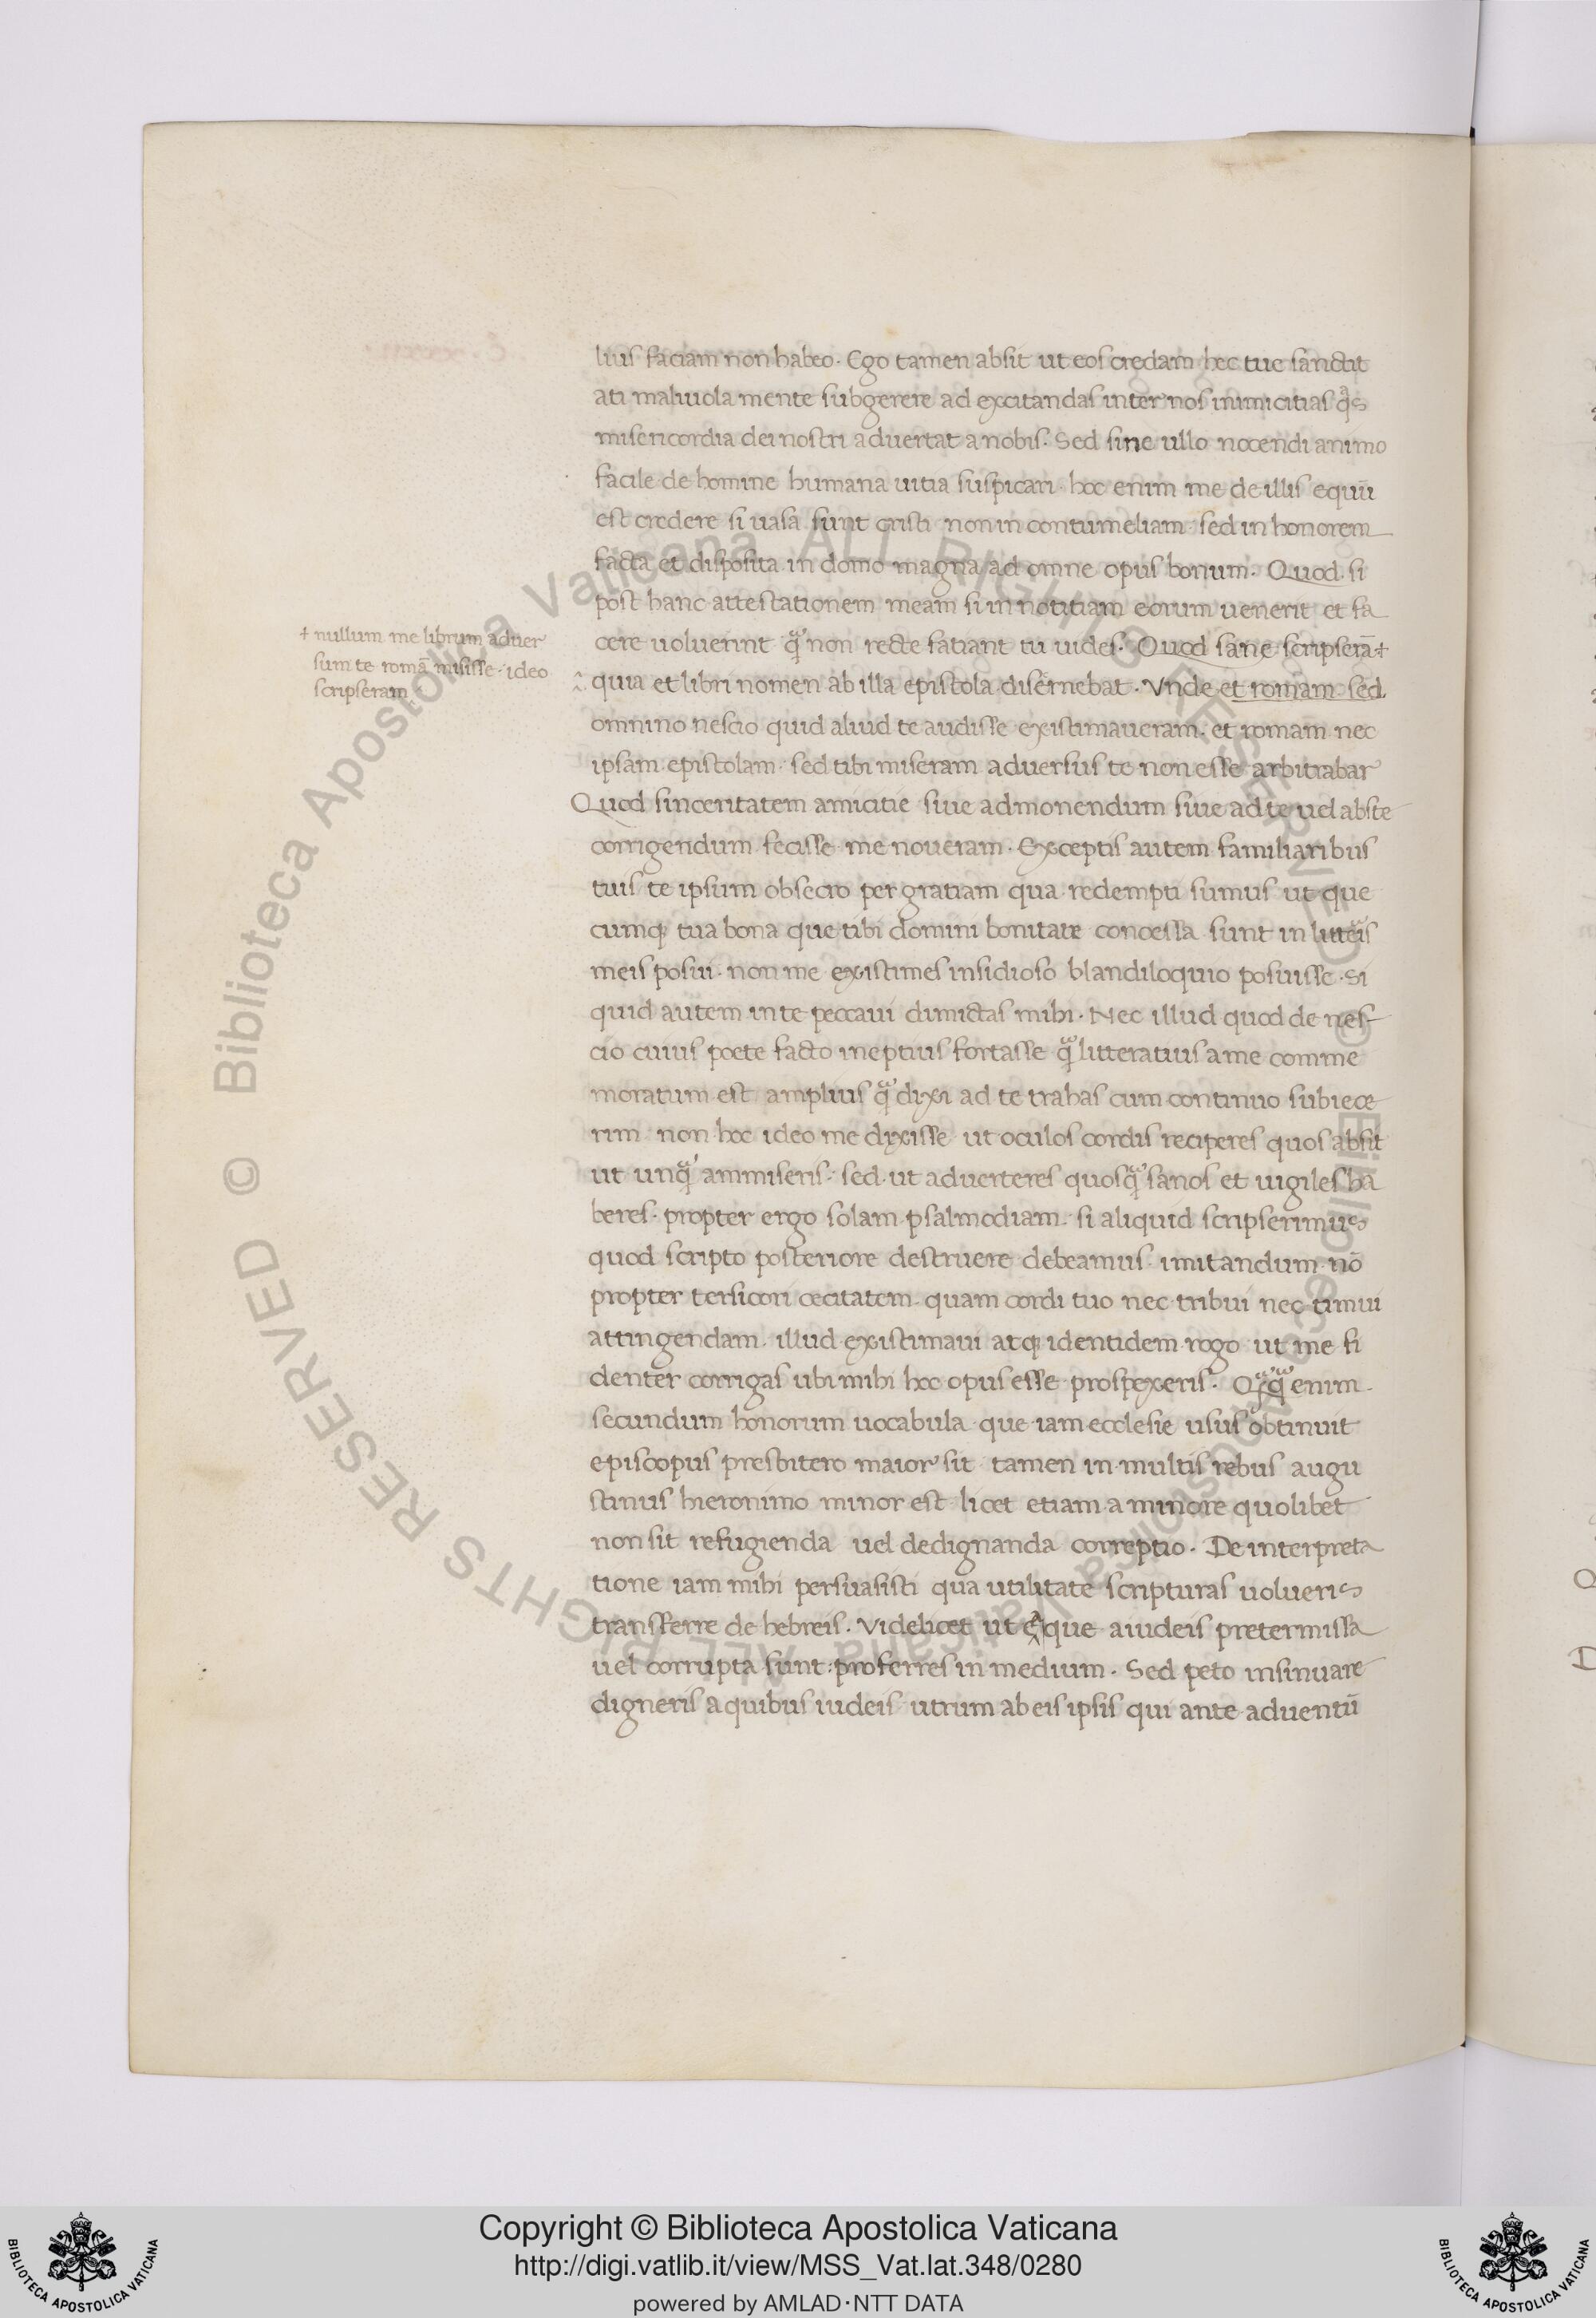 lius faciam non habeo. Ego tamen absit ut eos credam hec tue sanctit
ati maliuola mente subgerere ad excitandas inter nos inimicitias q̃s
misericordia dei nostri aduertat a nobis. Sed sine ullo nocendi animo
facile de homine humana uitia suspicari. hoc enim me de illis equũ
est credere si uasa sunt cristi non in contumeliam sed in honorem
facta et disposita in domo magna ad omne opus bonum. Quod si
post hanc attestationem meam si in notitiam eorum uenerit et fa
cere uoluerint q̃ non recte fatiant tu uides. Quod sane scripserã +
quia et libri nomen ab illa epistola disernebat. Vnde et romam sed
omnino nescio quid aliud te audisse existimaueram. et romam nec
ipsam epistolam. sed tibi miseram aduersus te non esse arbitrabar
Quod sinceritatem amicitie siue admonendum siue ad te uel abste
corrigendum fecisse me noueram. Exceptis autem familiaribus
tuis te ipsum obsecro per gratiam qua redempti sumus ut que
cumq; tua bona que tibi domini bonitate concessa sunt in litteris
meis posui. non me existimes insidioso blandiloquio posuisse. Si
quid autem in te peccaui dimictas mihi. Nec illud quod de nes
cio cuius poete facto ineptius fortasse q̃ litteratius a me comme
moratum est amplius q̃ dixi ad te trahas cum continuo subiece
rim non hoc ideo me dixisse ut oculos cordis reciperes quos absit
ut unq̃ ammiseris. sed ut aduerteres quosq̃ sanos et uigiles ha
beres. propter ergo solam psalmodiam. si aliquid scripserimus
quod scripto posteriore destruere debeamus. imitandum nõ
propter tersicori cecitatem. quam cordi tuo nec tribui nec timui
attingendam. illud existimaui atq; identidem rogo ut me fi
denter corrigas ubi mihi hoc opus esse prospexeris. Q̃q̃ enim
secundum honorum uocabula que iam ecclesie usus obtinuit
episcopus presbitero maior sit tamen in multis rebus augu
stinus hieronimo minor est licet etiam a minore quolibet
non sit refugienda uel dedignanda correptio. De interpreta
tione iam mihi persuasisti qua utilitate scripturas uolueris
transferre de hebreis. Videlicet ut ea que a iudeis pretermissa
uel corrupta sunt proferres in medium. Sed peto insinuare
digneris a quibus iudeis utrum ab eis ipsis qui ante aduentũ
+ nullum me librum aduer
sum te romã misisse. ideo
scripseram
© Biblioteca Apostolica Vaticana ALL RIGHTS RESERVED
© Biblioteca Apostolica Vaticana ALL RIGHTS RESERVED
Copyright © Biblioteca Apostolica Vaticana
http://digi.vatlib.it/view/MSS_Vat.lat.348/0280
powered by AMLAD·NTT DATA
BIBLIOTECA APOSTOLICA VATICANA
BIBLIOTECA APOSTOLICA VATICANA